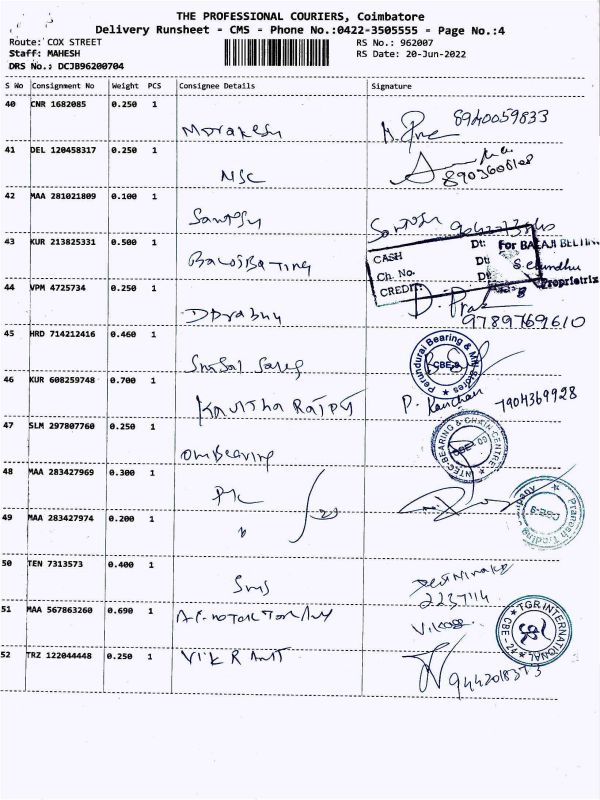 THE PROFESSIONAL COURIERS, Coimbatore
Delivery Runsheet - CMS - Phone No.:0422-3505555 - Page No.:4
Route: COX STREET RS No.: 962007
Staff: MAHESH RS Date: 20-Jun-2022
DRS No.: DCJB96200704
S No Consignment No Weight PCS Consignee Details Signature
40 CNR 1682085 0.250 1
8940059833
41 DEL 120458317 0.250 1
MSC
42 MAA 281021809 0.100 1
Santosh Santosh
43 KUR 213825331 0.500 1
CASH Dt: For BALAJI BELTING
Ch. No. Dt:
CREDIT: Dt:
Proprietrix
44 VPM 4725734 0.250 1
D Prabhu
9789769610
45 HRD 714212416 0.460 1
Perundurai Bearing & Mill Stores
CBE-9
46 KUR 608259748 0.700 1
Kavitha P. Kanchan 7904369928
47 SLM 297807760 0.250 1
Om Bearing
INTEC-BEARING & CHAIN CENTRE
48 MAA 283427969 0.300 1
Pranesh Trading Company
CBE-9
49 MAA 283427974 0.200 1
50 TEN 7313573 0.400 1
Sms
51 MAA 567863260 0.690 1
TGR INTERNATIONAL
52 TRZ 122044448 0.250 1
9442018373